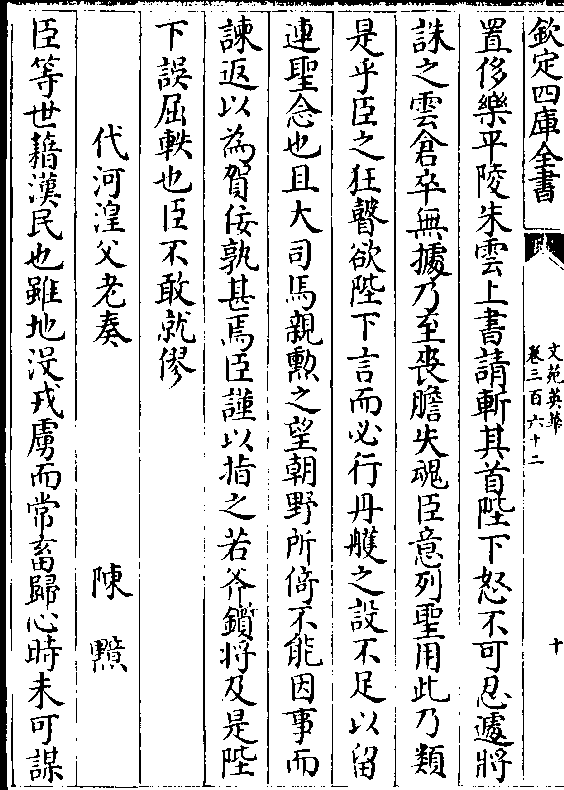 欽定四庫全書
文苑英華
卷三百六十二
十
置侈樂平陵朱雲上書請斬其首陛下怒不可忍遽將
誅之雲倉卒無據乃至喪膽失魂臣意列聖用此乃類
是乎臣之狂瞽欲陛下言而必行丹雘之設不足以留
連聖念也且大司馬親勲之望朝野所倚不能因事而
諫返以為賀佞孰甚焉臣謹以指之若斧鑕將及是陛
下誤屈軼也臣不敢就僇
代河湟父老奏
陳黯
臣等世籍漢民也雖地没戎虜而常畜歸心時未可謀